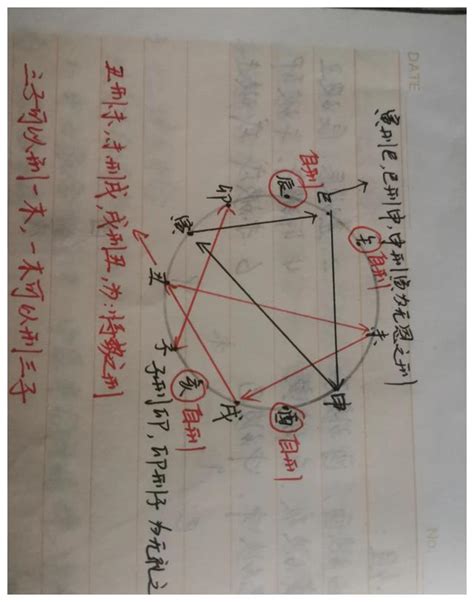 DATE
No.
寅刑巳,巳刑申,申刑寅为无恩之刑
午 自刑
未
自刑 巳
辰
申
卯
寅
酉 自刑
丑
戌
子
亥 自刑
子刑卯,卯刑子为无礼之
丑刑未,未刑戌,戌刑丑,为:恃势之刑
三子可以刑一木,一木可以刑三子